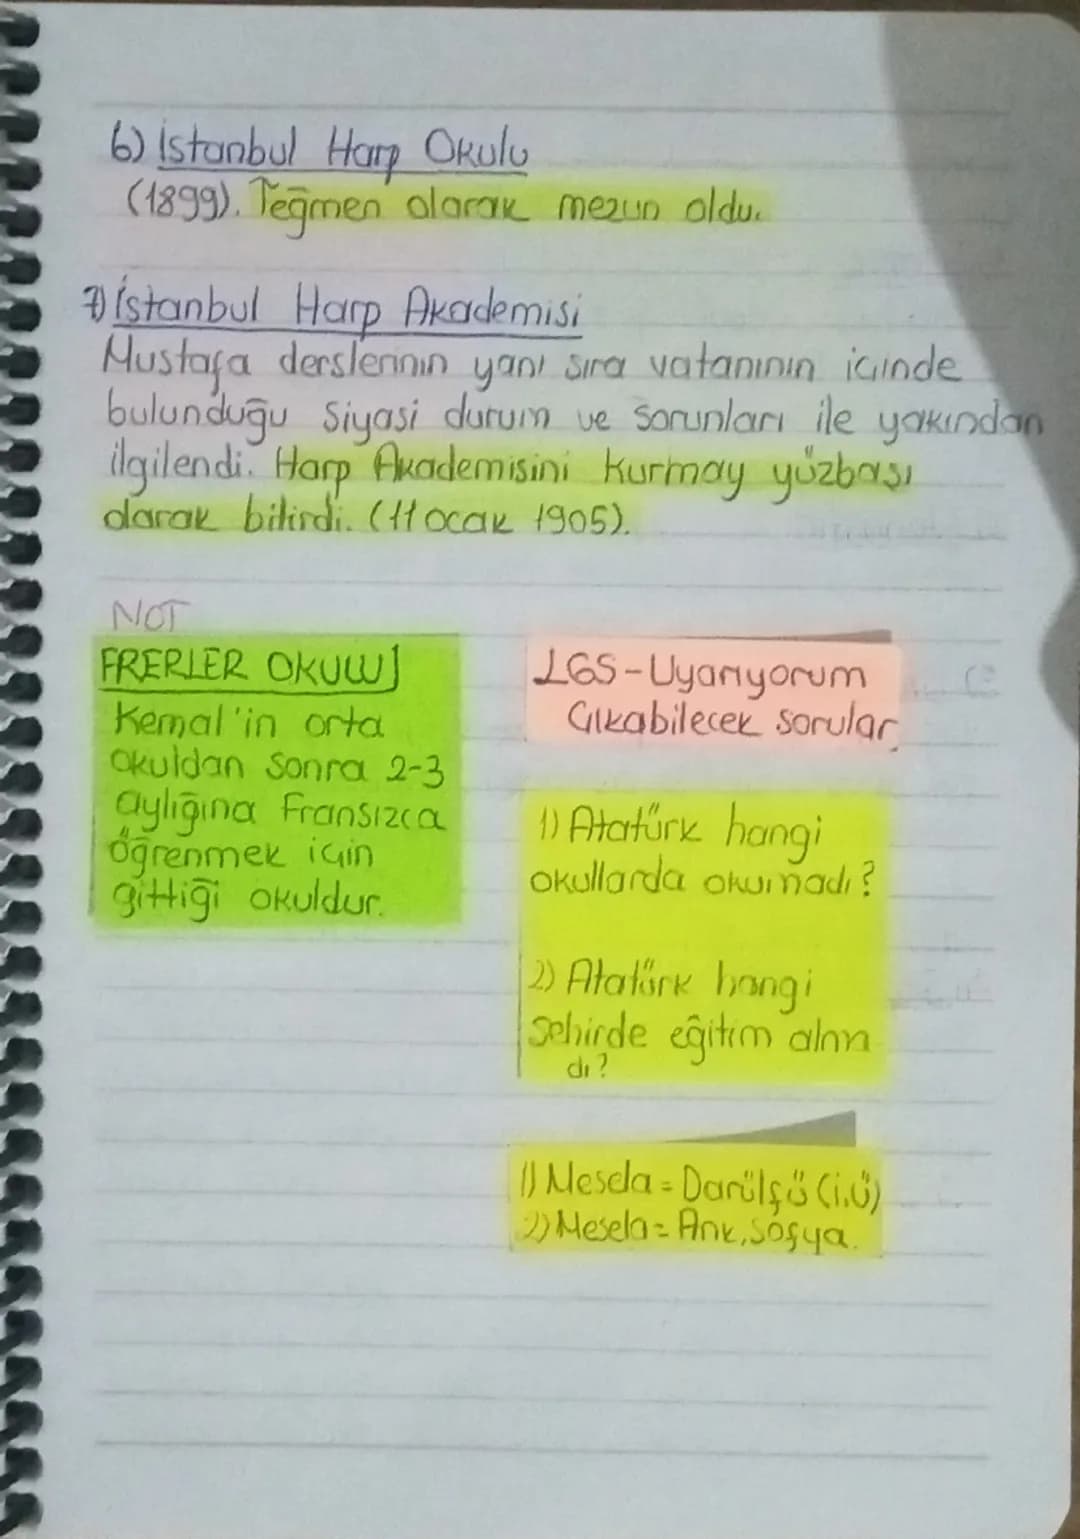 6) İstanbul Harp Okulu
(1899). Teğmen olarak mezun oldu.
7) İstanbul Harp Akademisi
Mustafa derslerinin yanı sıra vatanının içinde
bulunduğu siyasi durum ve sorunları ile yakından
ilgilendi. Harp Akademisini Kurmay yüzbaşı
olarak bitirdi. (11 ocak 1905).
NOT
FRERLER OKULU
Kemal'in orta
okuldan sonra 2-3
aylığına Fransızca
öğrenmek için
gittiği okuldur.
LGS-Uyarıyorum
Çıkabilecek sorular
1) Atatürk hangi
okullarda okumadı?
2) Atatürk hangi
şehirde eğitim alma
dı?
1) Mesela = Darülfü (i.ü)
2) Mesela = Ank, Sofya.